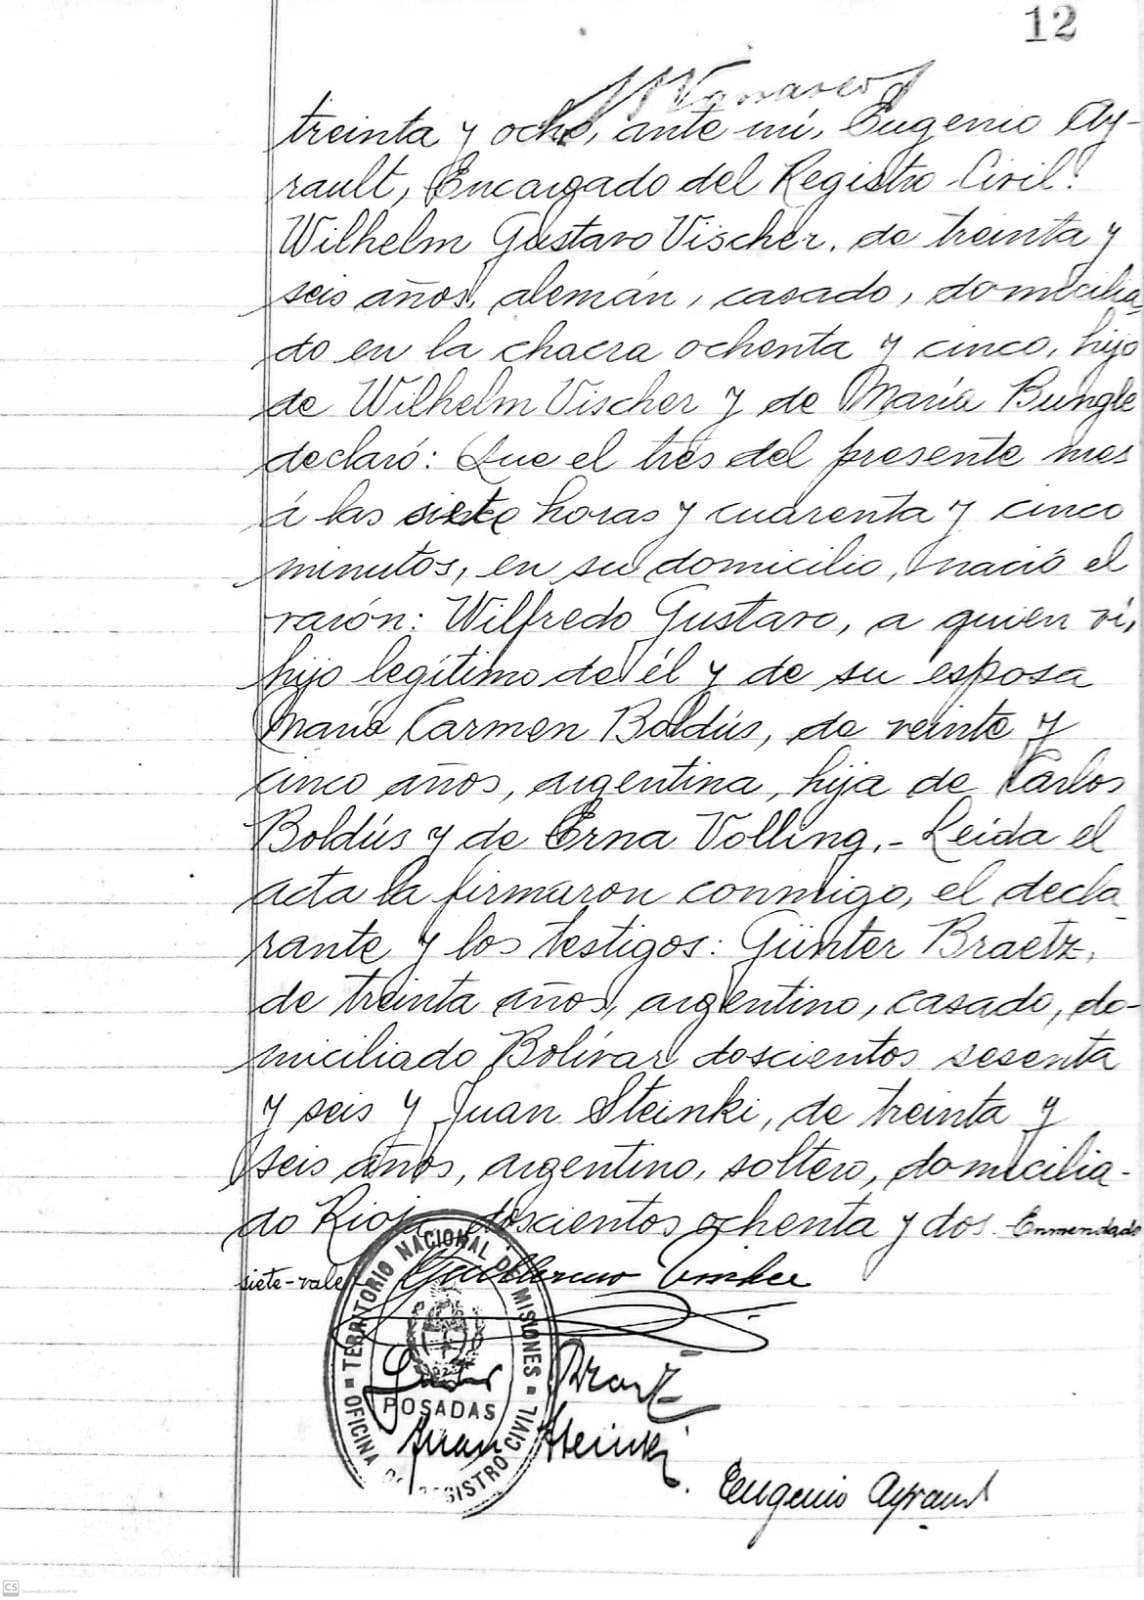 12
treinta y ocho, ante mí, Eugenio Ay-
rault, Encargado del Registro Civil:
Wilhelm Gustavo Vischer, de treinta y
seis años, alemán, casado, domicilia
do en la chacra ochenta y cinco, hijo
de Wilhelm Vischer y de María Bungle
declaró: Que el tres del presente mes
á las siete horas y cuarenta y cinco
minutos, en su domicilio, nació el
varón: Wilfredo Gustavo, a quien ví,
hijo legítimo de él y de su esposa
María Carmen Boldús, de veinte y
cinco años, argentina, hija de Carlos
Boldús y de Erna Volling.- Leida el
acta la firmaron conmigo, el decla_
rante y los testigos: Günter Braetz,
de treinta años, argentino, casado, do-
miciliado Bolívar doscientos sesenta
y seis y Juan Steinki, de treinta y
seis años, argentino, soltero, domicilia-
do Rioja doscientos ochenta y dos. Enmendado
siete-vale- Guillermo
TERRITORIO NACIONAL DE MISIONES
POSADAS
OFICINA DE REGISTRO CIVIL
Juan Steinki.
Eugenio Ayrault
CS